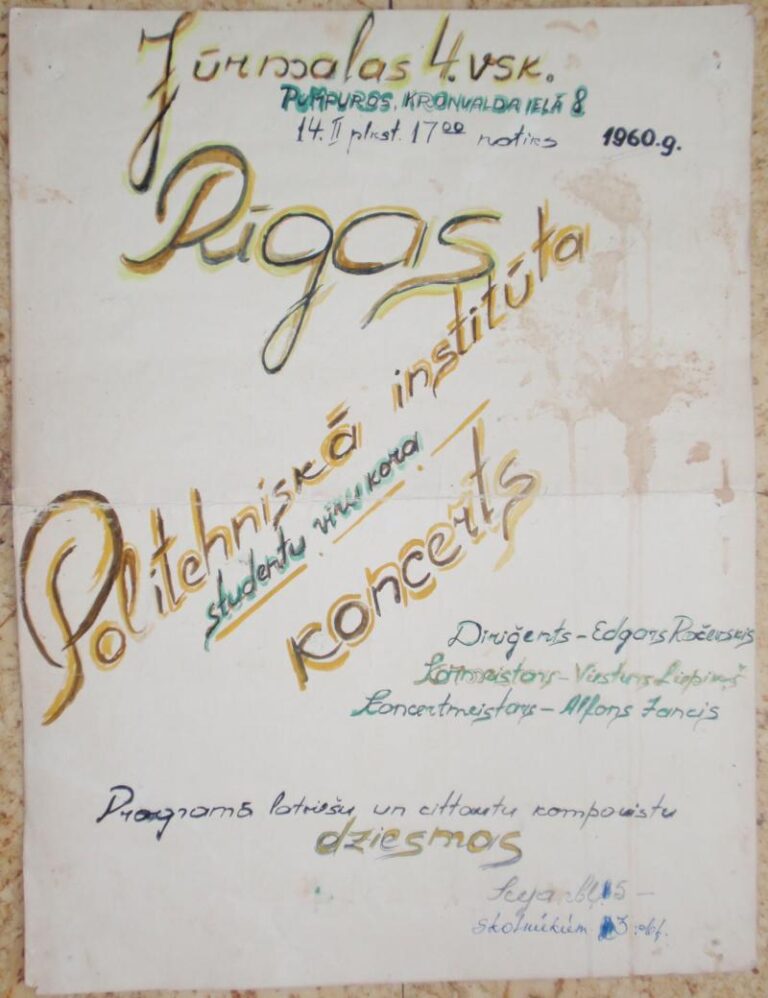 Jūrmalas 4. vsk.
PUMPUROS, KRONVALDA IELĀ 8
14. II plkst. 17⁰⁰ notiks 1960.g.
Rīgas
Politehniskā institūta
studentu vīru kora
koncerts
Diriģents – Edgars Račevskis
Kormeistars – Viesturs
Koncertmeistars – Alfons Jancis
Programā latviešu un cittautu komponistu
dziesmas
skolniekiem